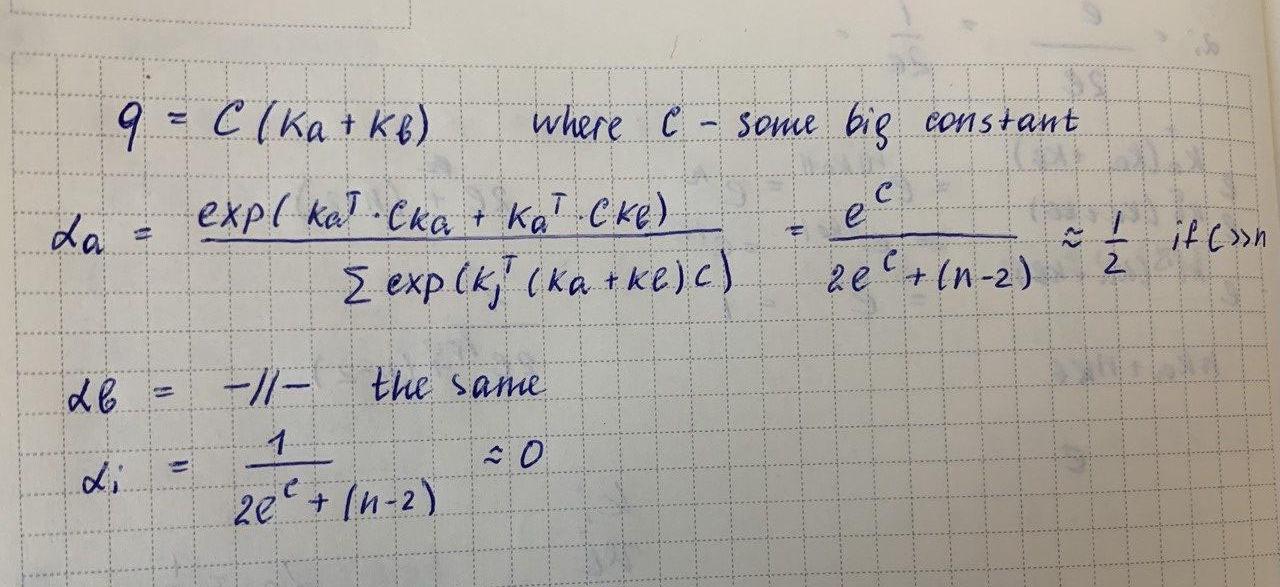 q = C (Ka + Kв) where C - some big constant
αa = exp( Kaᵀ · CKa + Kaᵀ · CKв) / Σ exp (Kjᵀ (Ka + Kв) C) = e^C / 2e^C + (n-2) ≈ 1/2 if C >> n
αв = -//- the same
αi = 1 / 2e^C + (n-2) ≈ 0